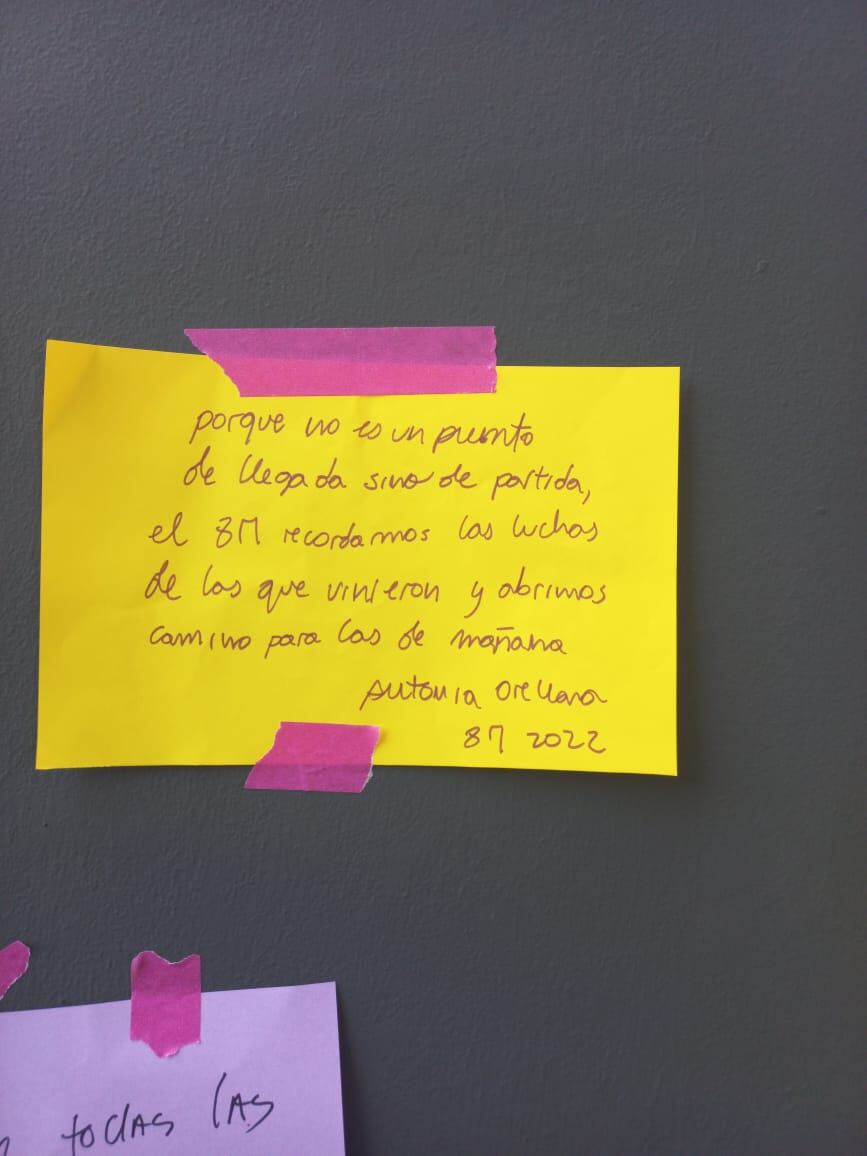 porque no es un punto
de llegada sino de partida,
el 8M recordamos las luchas
de las que vinieron y abrimos
camino para las de mañana
Antonia Orellana
8M 2022
todas las